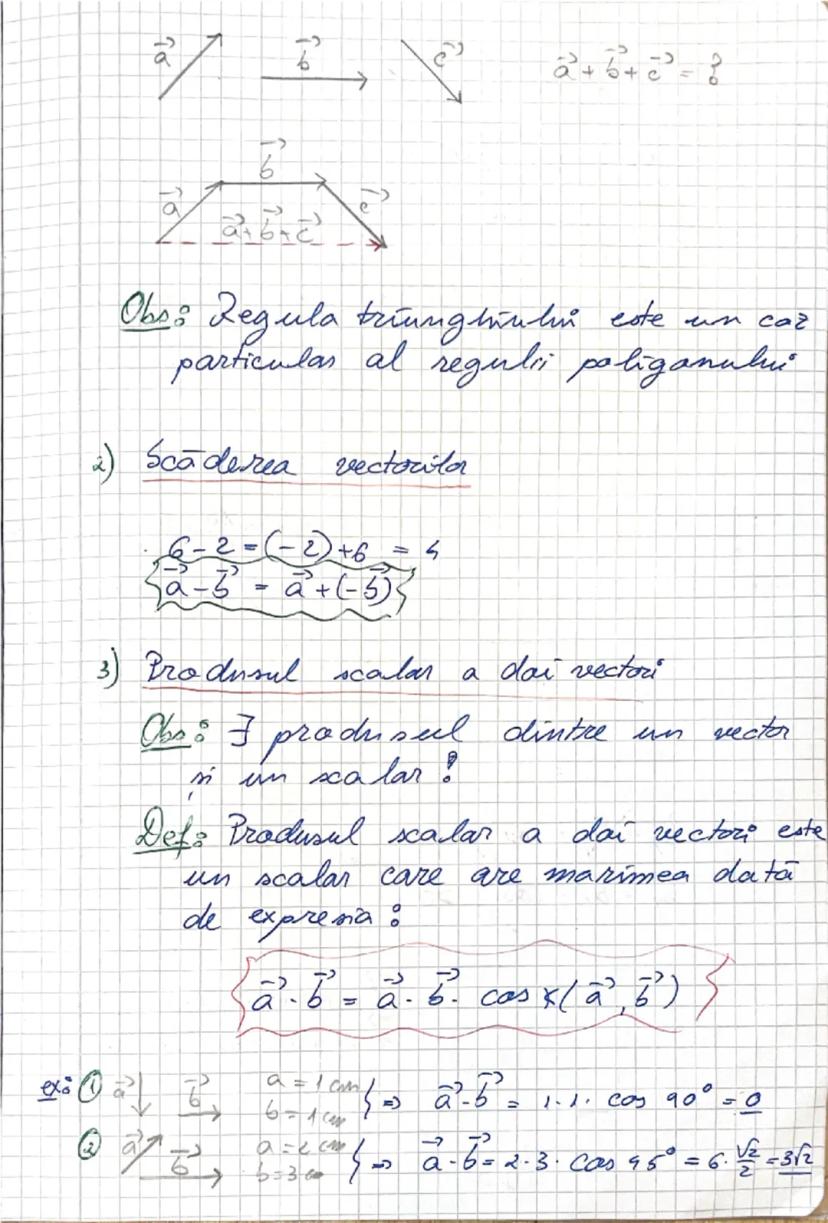 a⃗ b⃗ c⃗ a⃗ + b⃗ + c⃗ = ?
b⃗
a⃗ c⃗
a⃗ + b⃗ + c⃗
Obs: Regula triunghiului este un caz
particular al regulii poligonului
2) Scăderea vectorilor
6 - 2 = (-2) + 6 = 4
a⃗ - b⃗ = a⃗ + (-b⃗)
3) Produsul scalar a doi vectori
Obs: ∃ produsul dintre un vector
și un scalar!
Def: Produsul scalar a doi vectori este
un scalar care are marimea dată
de expresia:
a⃗ · b⃗ = a⃗ · b⃗ · cos ∢(a⃗, b⃗)
ex: ① a⃗ b⃗ a = 1 cm b = 1 cm } ⇒ a⃗ · b⃗ = 1 · 1 · cos 90° = 0
② a⃗ b⃗ a = 2 cm b = 3 cm } ⇒ a⃗ · b⃗ = 2 · 3 · cos 45° = 6 · √2/2 = 3√2